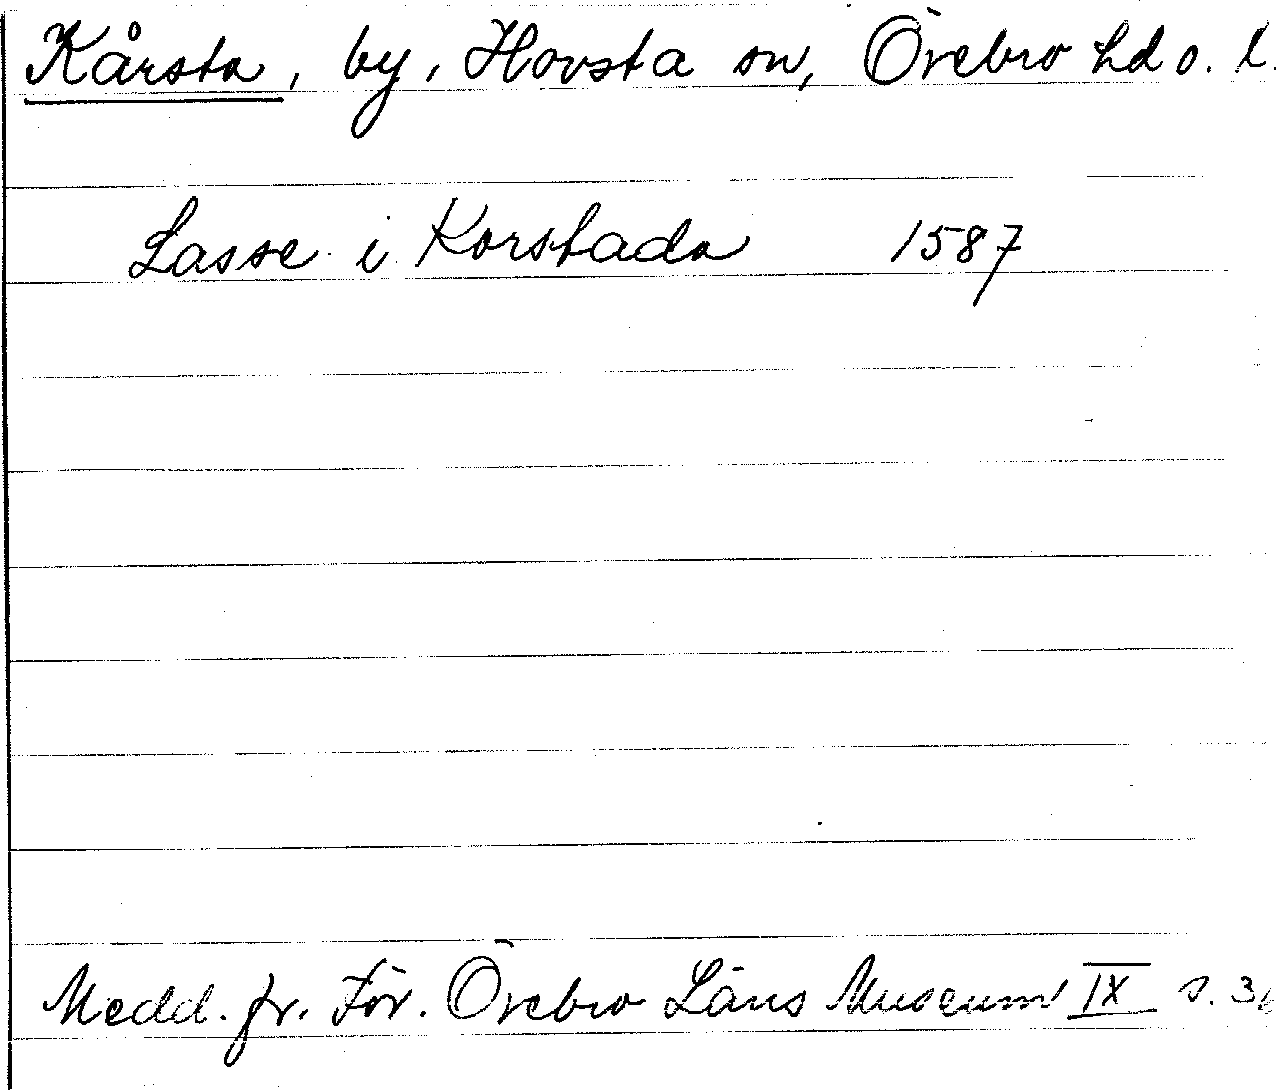 Kårsta, by, Hovsta sn, Örebro hd o. l.
Lasse i Korstada 1587
Medd. fr. För. Örebro Läns Museum IX s.